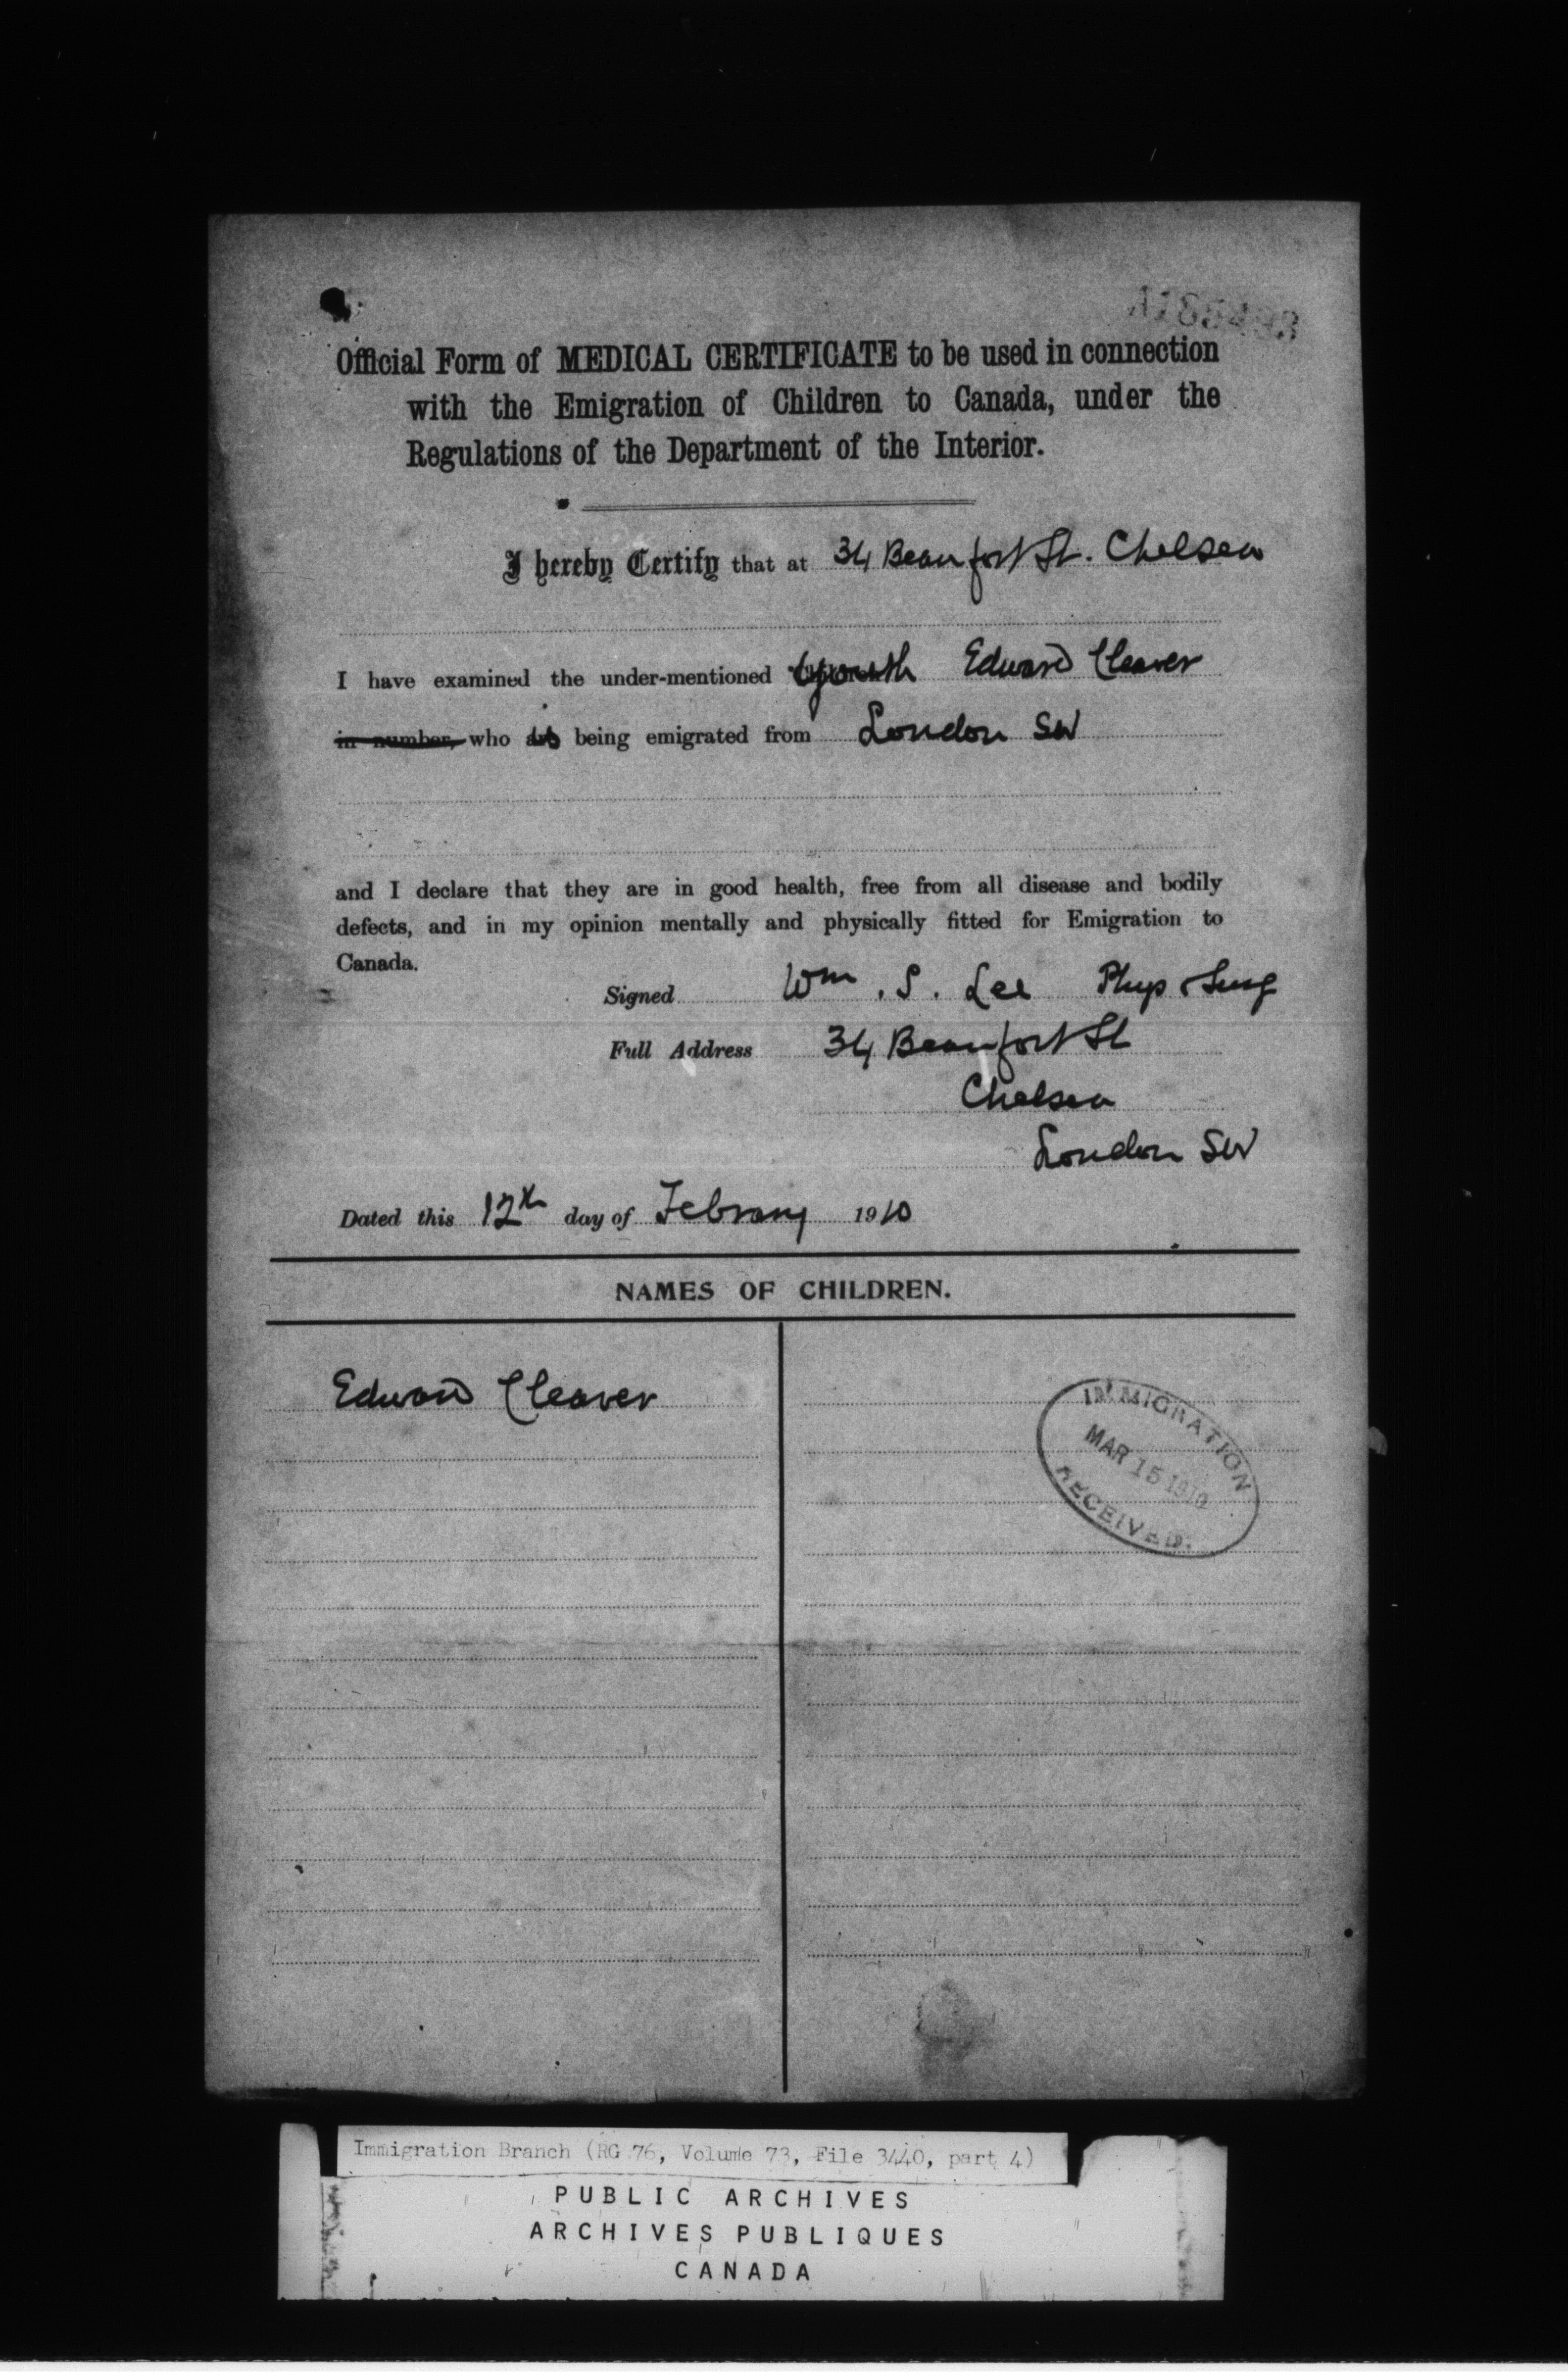 Official Form of MEDICAL CERTIFICATE to be used in connection
with the Emigration of Children to Canada, under the
Regulations of the Department of the Interior.
I hereby Certify that at 34 Beaufort St. Chelsea
I have examined the under-mentioned youth Edward Cleaver
in number, who is being emigrated from London SW
and I declare that they are in good health, free from all disease and bodily
defects, and in my opinion mentally and physically fitted for Emigration to
Canada.
Signed Wm. S. Lee Phys & Surg
Full Address 34 Beaufort St
Chelsea
London SW
Dated this 12th day of February 1910
NAMES OF CHILDREN.
Edward Cleaver
IMMIGRATION
MAR 15 1910
RECEIVED.
Immigration Branch (RG 76, Volume 73, File 3440, part 4)
PUBLIC ARCHIVES
ARCHIVES PUBLIQUES
CANADA